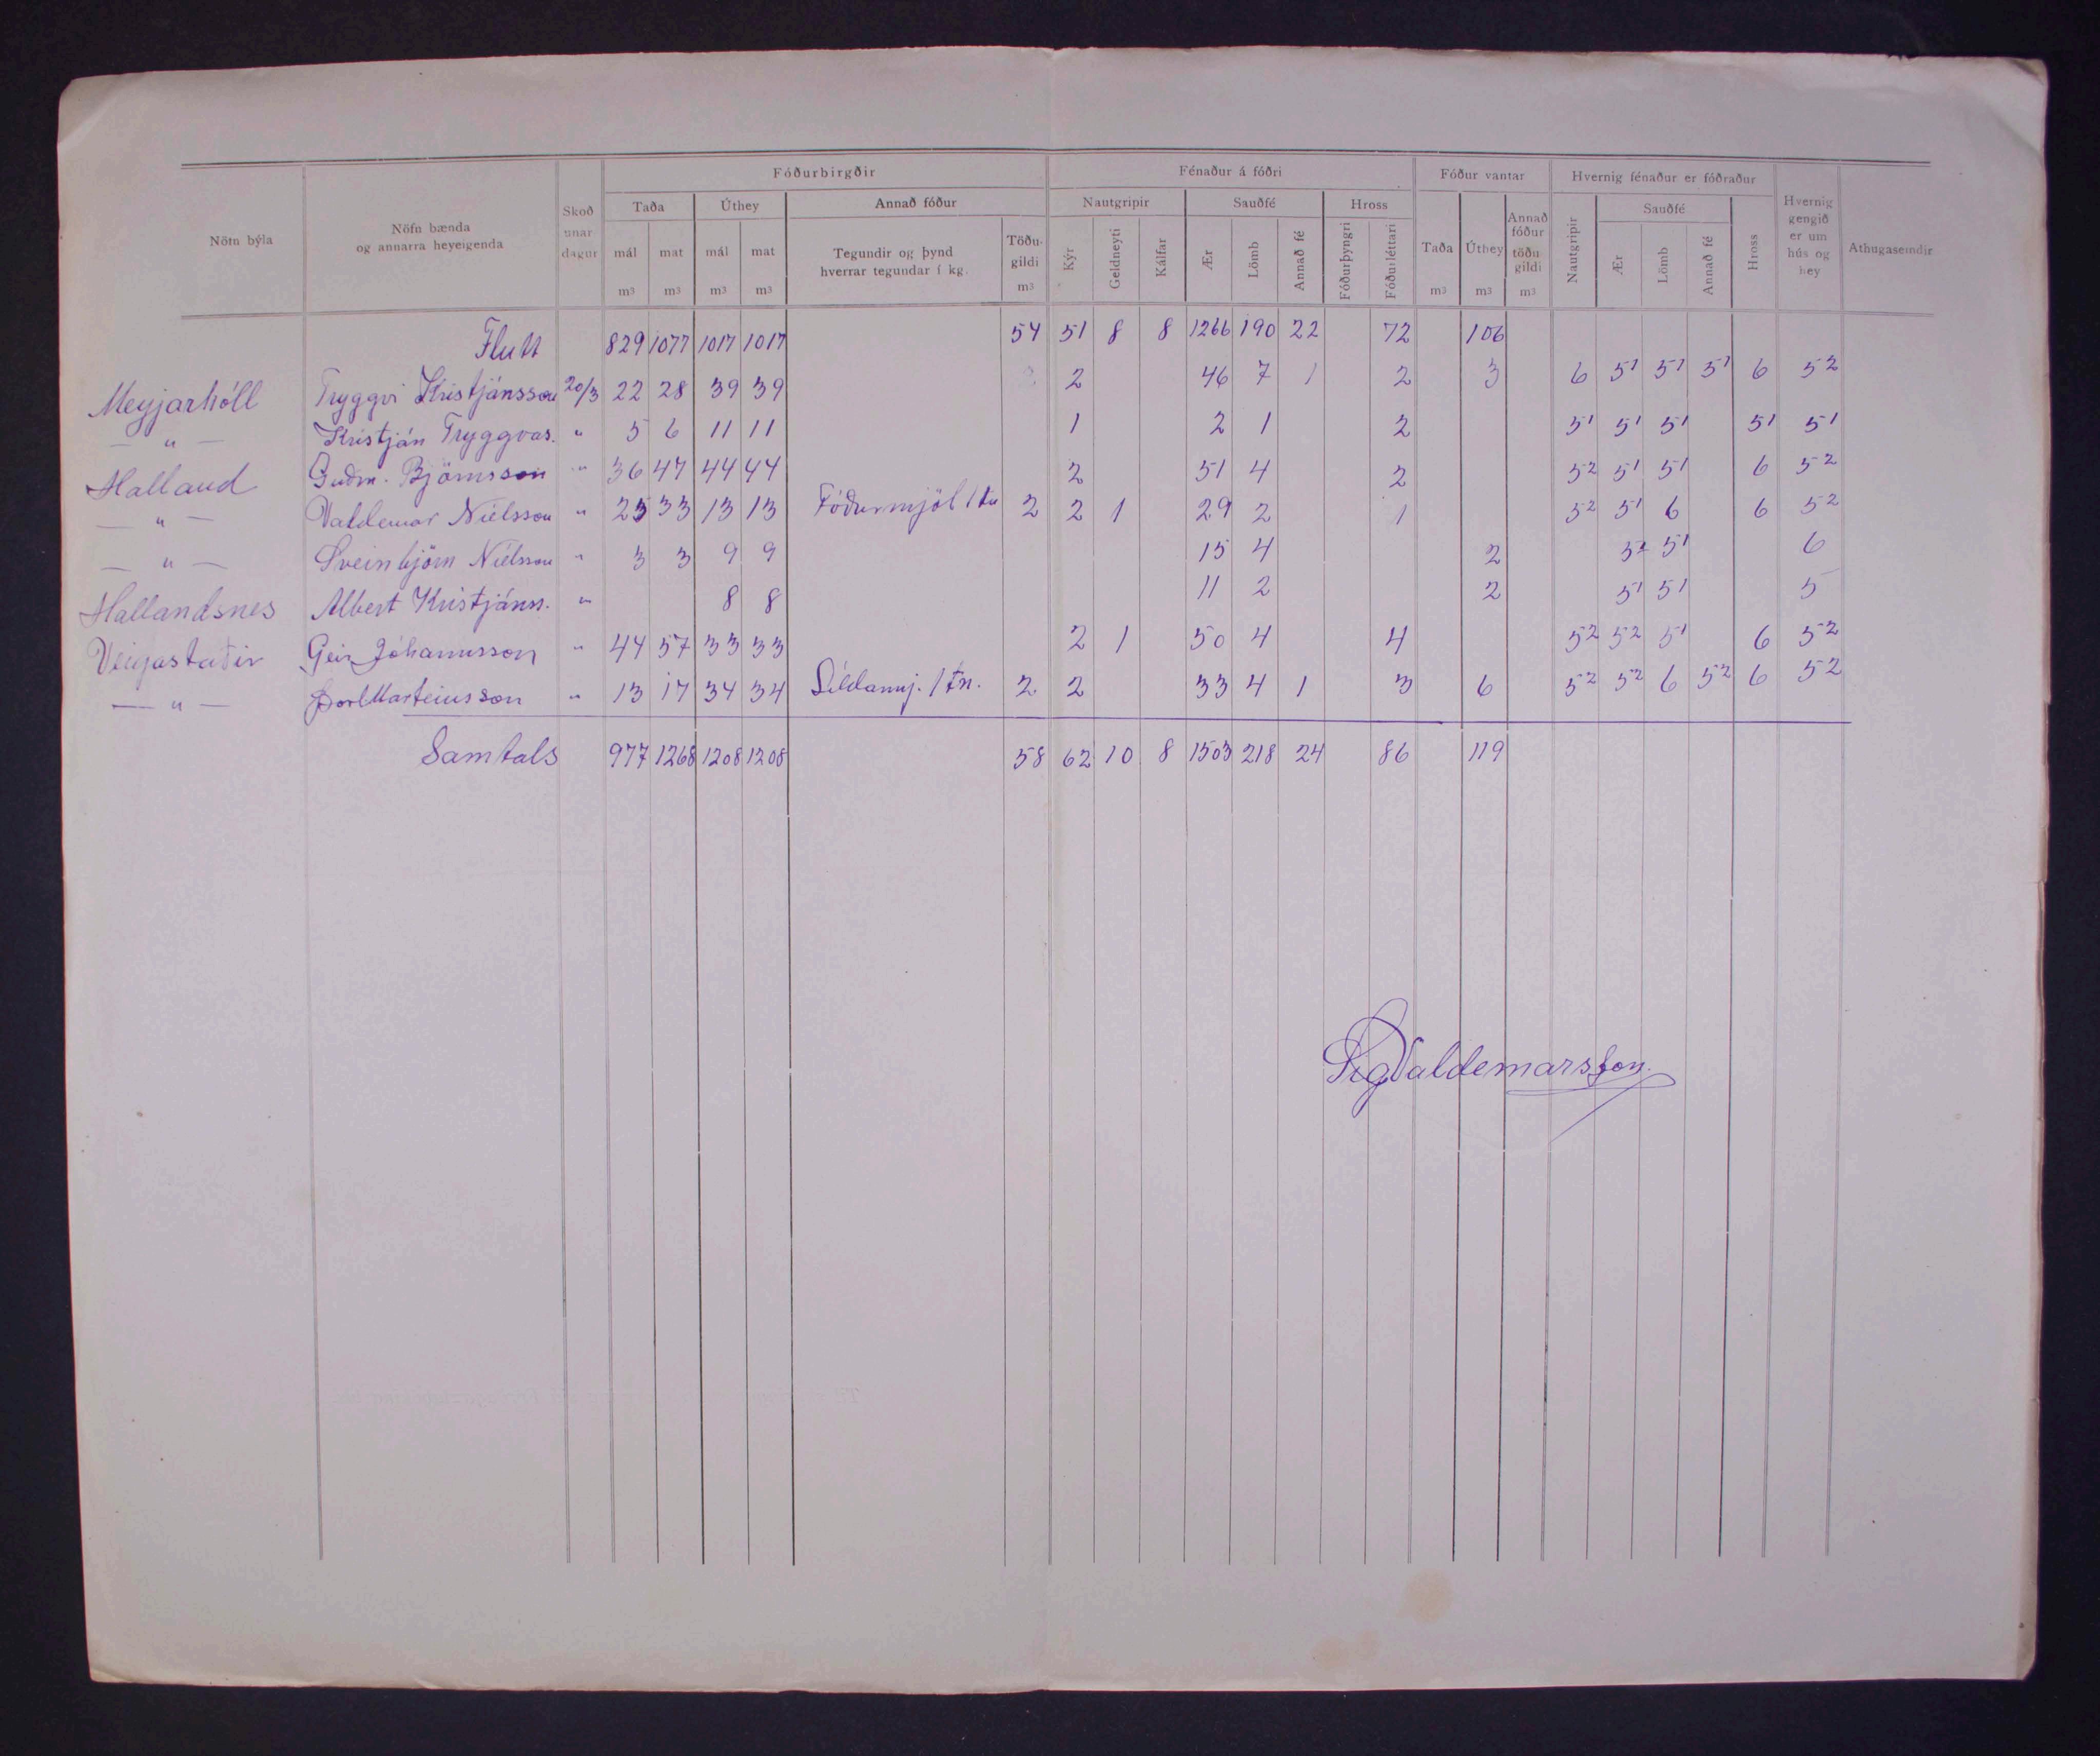 Nöfn býla
Nöfn bænda og annarra heyeigenda
Skoðunar dagur
Fóðurbirgðir
Taða
Úthey
Annað fóður
mál m³
mat m³
mál m³
mat m³
Tegundir og þynd hverrar tegundar í kg.
Töðugildi m³
Fénaður á fóðri
Nautgripir
Sauðfé
Hross
Kýr
Geldneyti
Kálfar
Ær
Lömb
Annað fé
Fóðurþyngri
Fóðurléttari
Fóður vantar
Taða m³
Úthey m³
Annað fóður töðugildi m³
Hvernig fénaður er fóðraður
Nautgripir
Sauðfé
Ær
Lömb
Annað fé
Hross
Hvernig gengið er um hús og hey
Athugasemdir
Flutt 829 1077 1017 1017 54 51 8 8 1266 190 22 72 106
Meyjarhóll Tryggvi Kristjánsson 20/3 22 28 39 39 2 46 7 1 2 3 6 5¹ 5¹ 5¹ 6 5²
— " — Kristján Tryggvas. " 5 6 11 11 1 2 1 2 5¹ 5¹ 5¹ 5¹ 5¹
Halland Guðm. Björnsson " 36 47 44 44 2 51 4 2 5² 5¹ 5¹ 6 5²
— " — Valdemar Níelsson " 25 33 13 13 Fóðurmjöl 1 tn 2 2 1 29 2 1 5² 5¹ 6 6 5²
— " — Sveinbjörn Níelsson " 3 3 9 9 15 4 2 5² 5¹ 6
Hallandsnes Albert Kristjánss. " 8 8 11 2 2 5¹ 5¹ 5
Veigastaðir Geir Jóhannsson " 44 57 33 33 2 1 50 4 4 5² 5² 5¹ 6 5²
— " — Þorl Marteinsson " 13 17 34 34 Síldarmj. 1 tn. 2 2 33 4 1 3 6 5² 5² 6 5² 6 5²
Samtals 977 1268 1208 1208 58 62 10 8 1503 218 24 86 119
Sig Valdemarsson.